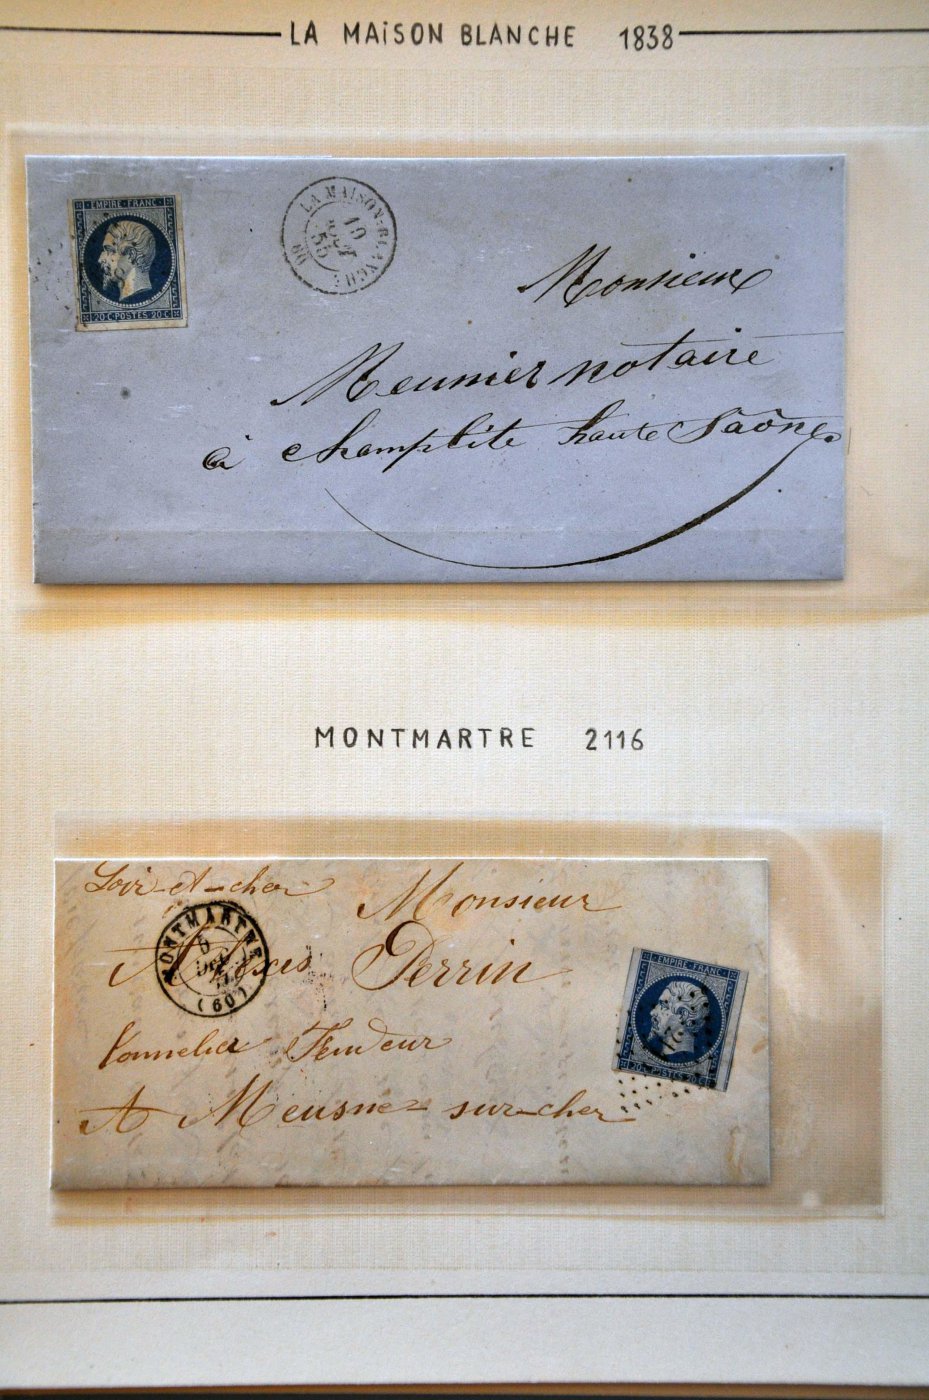 LA MAISON BLANCHE 1838
EMPIRE · FRANC ·
20·C·POSTES 20·C
LA MAISON-BLANCHE
19
OCT
55
(60)
Monsieur
Meunier notaire
à champlite haute Saône
MONTMARTRE 2116
Loir-et-cher
Monsieur
Perrin
MONTMARTRE
5
DEC
(60)
Fendeur
A Meusne-sur-cher
EMPIRE · FRANC ·
20·C·POSTES 20·C